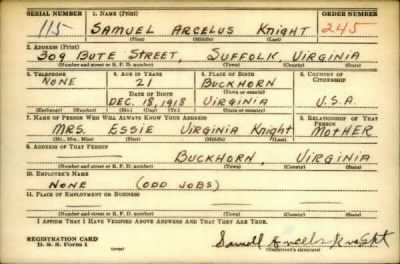 SERIAL NUMBER 1. NAME (Print) ORDER NUMBER
115 SAMUEL ARCELUS Knight 245
(First) (Middle) (Last)
2. ADDRESS (Print)
309 BUTE STREET, SUFFOLK, VIRGINIA
(Number and street or R. F. D. number) (Town) (County) (State)
3. TELEPHONE 4. AGE IN YEARS 5. PLACE OF BIRTH 6. COUNTRY OF CITIZENSHIP
NONE 21 BUCKHORN
DATE OF BIRTH (Town or county)
DEC. 18, 1918 VIRGINIA U.S.A.
(Exchange) (Number) (Mo.) (Day) (Yr.) (State or country)
7. NAME OF PERSON WHO WILL ALWAYS KNOW YOUR ADDRESS 8. RELATIONSHIP OF THAT PERSON
MRS. ESSIE VIRGINIA Knight MOTHER
(Mr., Mrs., Miss) (First) (Middle) (Last)
9. ADDRESS OF THAT PERSON
BUCKHORN, VIRGINIA
(Number and street or R. F. D. number) (Town) (County) (State)
10. EMPLOYER'S NAME
NONE (ODD JOBS)
11. PLACE OF EMPLOYMENT OR BUSINESS
(Number and street or R. F. D. number) (Town) (County) (State)
I AFFIRM THAT I HAVE VERIFIED ABOVE ANSWERS AND THAT THEY ARE TRUE.
REGISTRATION CARD
D. S. S. Form 1 Samuel Arcelus Knight
(Registrant's signature)